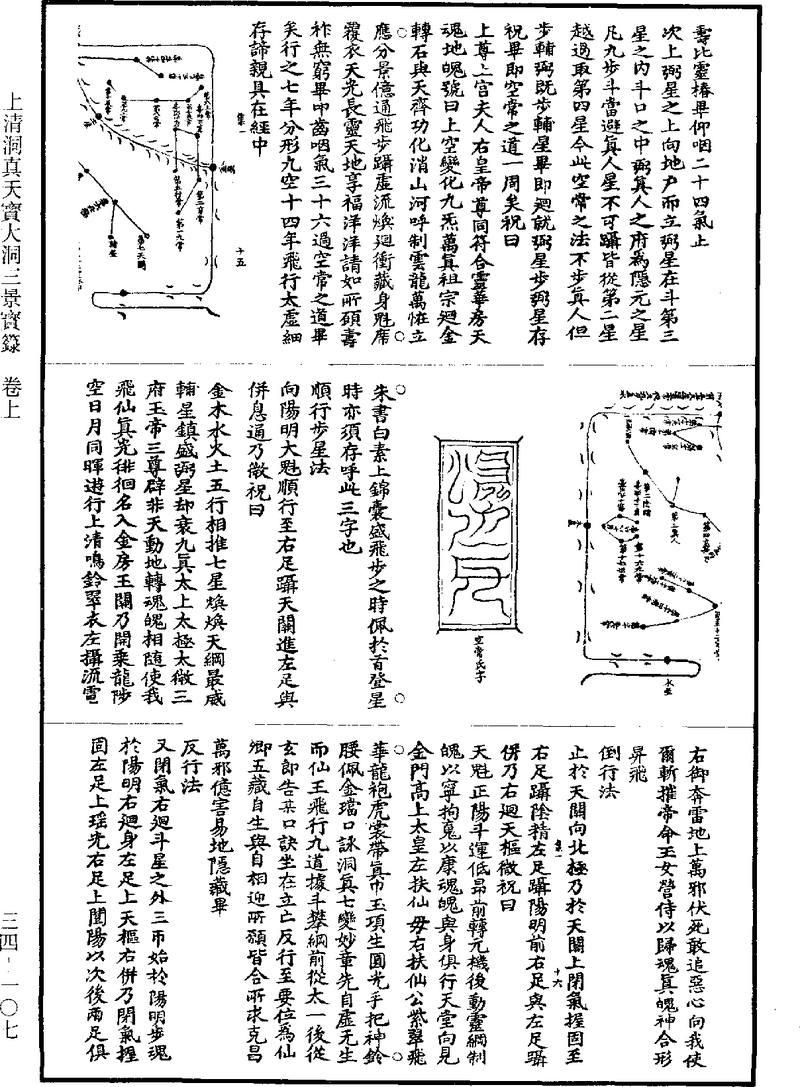 上清洞真天寶大洞三景寶籙 卷上
三四-一〇七
壽比靈椿畢仰咽二十四氣止
次上弼星之上向地户而立弼星在斗第三
星之内斗口之中弼真人之府為隱元之星
凡九步斗當避真人星不可躡皆從第二星
越過取第四星今此空常之法不步真人但
步輔弼既步輔星畢即迴就弼星步弼星存
祝畢即空常之道一周矣祝曰
上尊玄宫夫人右皇帝尊同符合靈華房天
魂地魄號曰上空變化九炁萬真祖宗迴金
轉石與天齊功化消山河呼制雲龍萬怪立
應分景億通飛步躡虚流煥迴衝藏身魁席
覆衣天光長靈天地享福洋洋請如所碩壽
祚無窮畢叩齒咽氣三十六過空常之道畢
矣行之七年分形九空十四年飛行太虚細
存諦親具在經中
集一
十五
空常氏字
朱書白素上錦囊盛飛步之時佩於首登星
時亦須存呼此三字也
順行步星法
向陽明大魁順行至右足躡天關進左足與
併息通乃微祝曰
金木水火土五行相推七星煥煥天綱最威
輔星鎮盛弼星却衰九真太上太極太微三
府玉帝三尊辟非天動地轉魂魄相隨使我
飛仙真光徘徊名入金房玉闕乃開乘龍陟
空日月同暉遊行上清鳴鈴翠衣左攝流電
右御奔雷地上萬邪伏死敢追惡心向我使
爾斬摧帝命玉女營侍以歸魂真魄神合形
昇飛
倒行法
止於天關向北極乃於天關上閉氣握固至
集一
十六
右足躡陰精左足躡陽明前右足與左足躡
併乃右迴天樞微祝曰
天魁正陽斗運低昂前轉元機後動靈綱制
魄以寧拘魂以康魂魄與身俱行天堂向見
金門高上太皇左扶仙母右扶仙公紫翠飛
華龍袍虎裳帶真巾玉項生圓光手把神鈴
腰佩金璫口詠洞真七變妙章先自虚无生
而仙王飛行九道據斗攀綱前從太一後從
玄郎告某口訣坐在立亡反行至要位為仙
卿五藏自生與自相迎所願皆合所求克昌
萬邪億害易地隱藏畢
反行法
又閉氣右迴斗星之外三帀始於陽明步魂
於陽明右迴身左足上天樞右併乃閉氣握
固左足上瑶光右足上闓陽以次後兩足俱